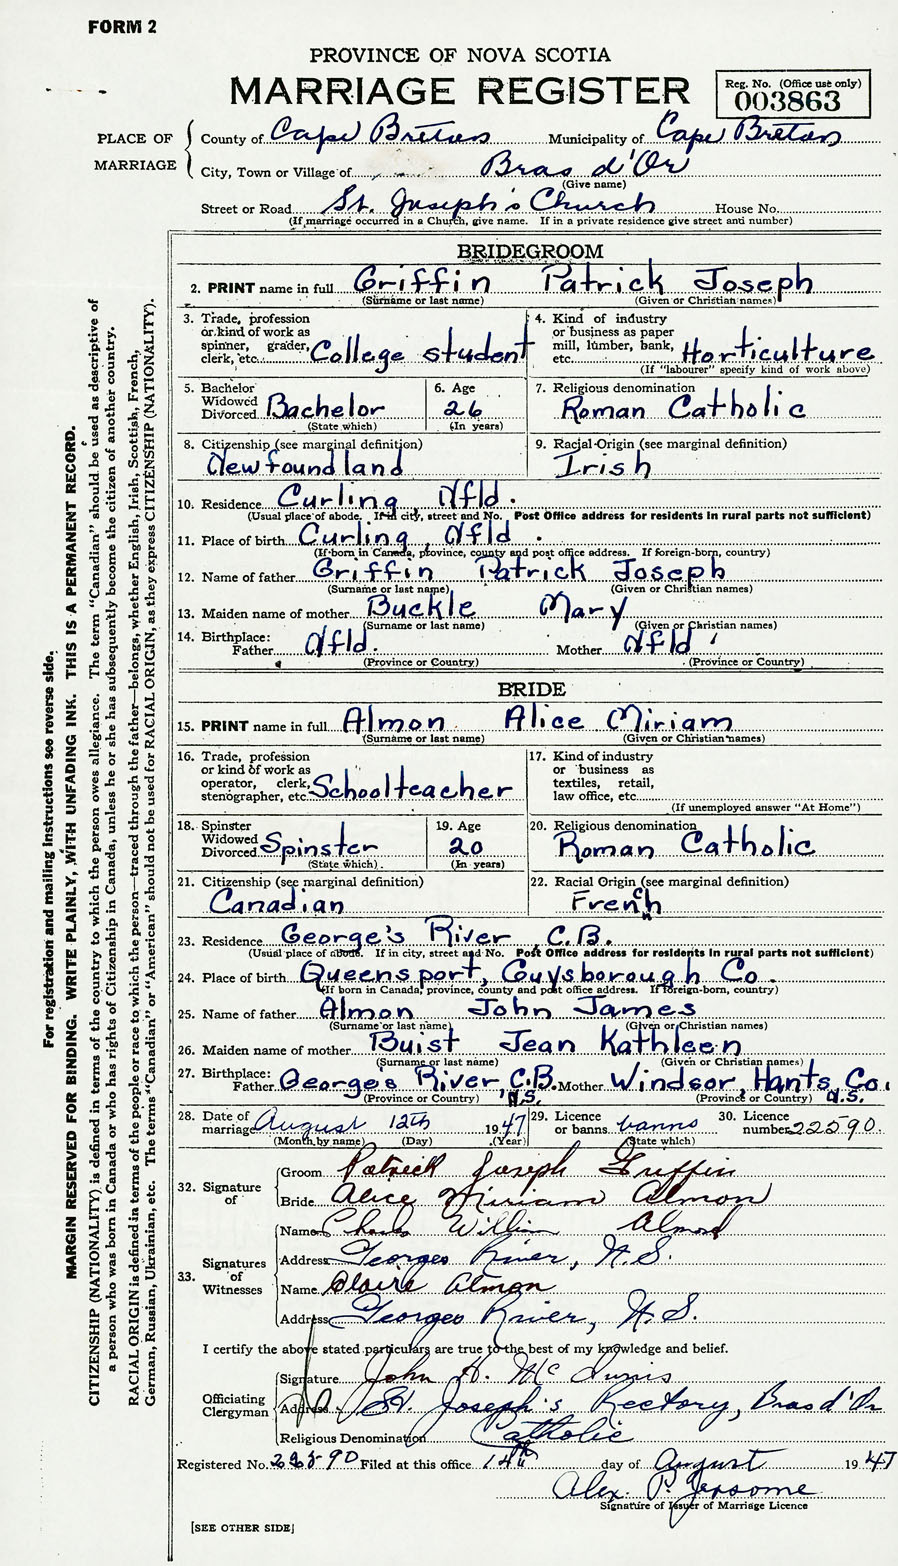 FORM 2
PROVINCE OF NOVA SCOTIA
MARRIAGE REGISTER
Reg. No. (Office use only)
003863
PLACE OF MARRIAGE
County of Cape Breton Municipality of Cape Breton
City, Town or Village of Bras d'Or
(Give name)
Street or Road St. Joseph's Church House No.
(If marriage occurred in a Church, give name. If in a private residence give street and number)
BRIDEGROOM
2. PRINT name in full Griffin Patrick Joseph
(Surname or last name) (Given or Christian names)
3. Trade, profession or kind of work as spinner, grader, clerk, etc. College student
4. Kind of industry or business as paper mill, lumber, bank, etc. Horticulture
(If "labourer" specify kind of work above)
5. Bachelor Widowed Divorced Bachelor
(State which)
6. Age 26
(In years)
7. Religious denomination
Roman Catholic
8. Citizenship (see marginal definition)
Newfoundland
9. Racial Origin (see marginal definition)
Irish
10. Residence Curling, Nfld.
(Usual place of abode. If in city, street and No. Post Office address for residents in rural parts not sufficient)
11. Place of birth Curling, Nfld.
(If born in Canada, province, county and post office address. If foreign-born, country)
12. Name of father Griffin Patrick Joseph
(Surname or last name) (Given or Christian names)
13. Maiden name of mother Buckle Mary
(Surname or last name) (Given or Christian names)
14. Birthplace:
Father Nfld. Mother Nfld
(Province or Country) (Province or Country)
BRIDE
15. PRINT name in full Almon Alice Miriam
(Surname or last name) (Given or Christian names)
16. Trade, profession or kind of work as operator, clerk, stenographer, etc. Schoolteacher
17. Kind of industry or business as textiles, retail, law office, etc.
(If unemployed answer "At Home")
18. Spinster Widowed Divorced Spinster
(State which)
19. Age 20
(In years)
20. Religious denomination
Roman Catholic
21. Citizenship (see marginal definition)
Canadian
22. Racial Origin (see marginal definition)
French
23. Residence George's River C.B.
(Usual place of abode. If in city, street and No. Post Office address for residents in rural parts not sufficient)
24. Place of birth Queensport, Guysborough Co.
(If born in Canada, province, county and post office address. If foreign-born, country)
25. Name of father Almon John James
(Surname or last name) (Given or Christian names)
26. Maiden name of mother Buist Jean Kathleen
(Surname or last name) (Given or Christian names)
27. Birthplace:
Father Georges River, C.B. N.S. Mother Windsor, Hants Co. N.S.
(Province or Country) (Province or Country)
28. Date of marriage August 12th 1947
(Month by name) (Day) (Year)
29. Licence or banns banns
(State which)
30. Licence number 22590
32. Signature of
Groom Patrick Joseph Griffin
Bride Alice Miriam Almon
33. Signatures of Witnesses
Name Charles William Almon
Address Georges River, N.S.
Name Claire Almon
Address Georges River, N.S.
I certify the above stated particulars are true to the best of my knowledge and belief.
Officiating Clergyman
Signature John H.
Address St. Joseph's Rectory, Bras d'Or
Religious Denomination Catholic
Registered No. 22590 Filed at this office 14th day of August 1947
Alex. P. Jessome
Signature of Issuer of Marriage Licence
[SEE OTHER SIDE]
For registration and mailing instructions see reverse side.
MARGIN RESERVED FOR BINDING. WRITE PLAINLY, WITH UNFADING INK. THIS IS A PERMANENT RECORD.
CITIZENSHIP (NATIONALITY) is defined in terms of the country to which the person owes allegiance. The term "Canadian" should be used as descriptive of
a person who was born in Canada or who has rights of Citizenship in Canada, unless he or she has subsequently become the citizen of another country.
RACIAL ORIGIN is defined in terms of the people or race to which the person—traced through the father—belongs, whether English, Irish, Scottish, French,
German, Russian, Ukrainian, etc. The terms "Canadian" or "American" should not be used for RACIAL ORIGIN, as they express CITIZENSHIP (NATIONALITY).